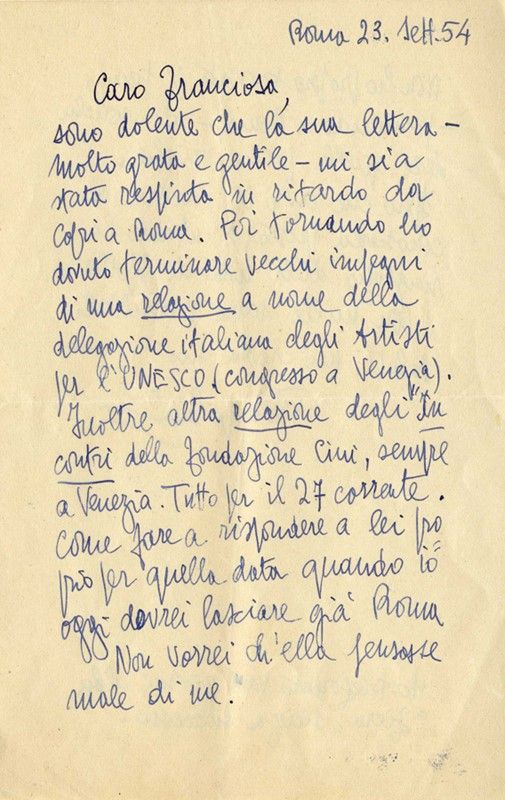 Roma 23. Sett. 54
Caro Franciosa,
sono dolente che la sua lettera –
molto grata e gentile – mi sia
stata respinta in ritardo da
Capri a Roma. Poi tornando ho
dovuto terminare vecchi impegni
di una relazione a nome della
delegazione italiana degli Artisti
per l'UNESCO. (congresso a Venezia).
Inoltre altra relazione degli "In
contri della Fondazione Cini, sempre
a Venezia. Tutto per il 27 corrente.
Come fare a rispondere a lei pro=
prio per quella data quando io
oggi dovrei lasciare già Roma
Non vorrei ch'ella pensasse
male di me.